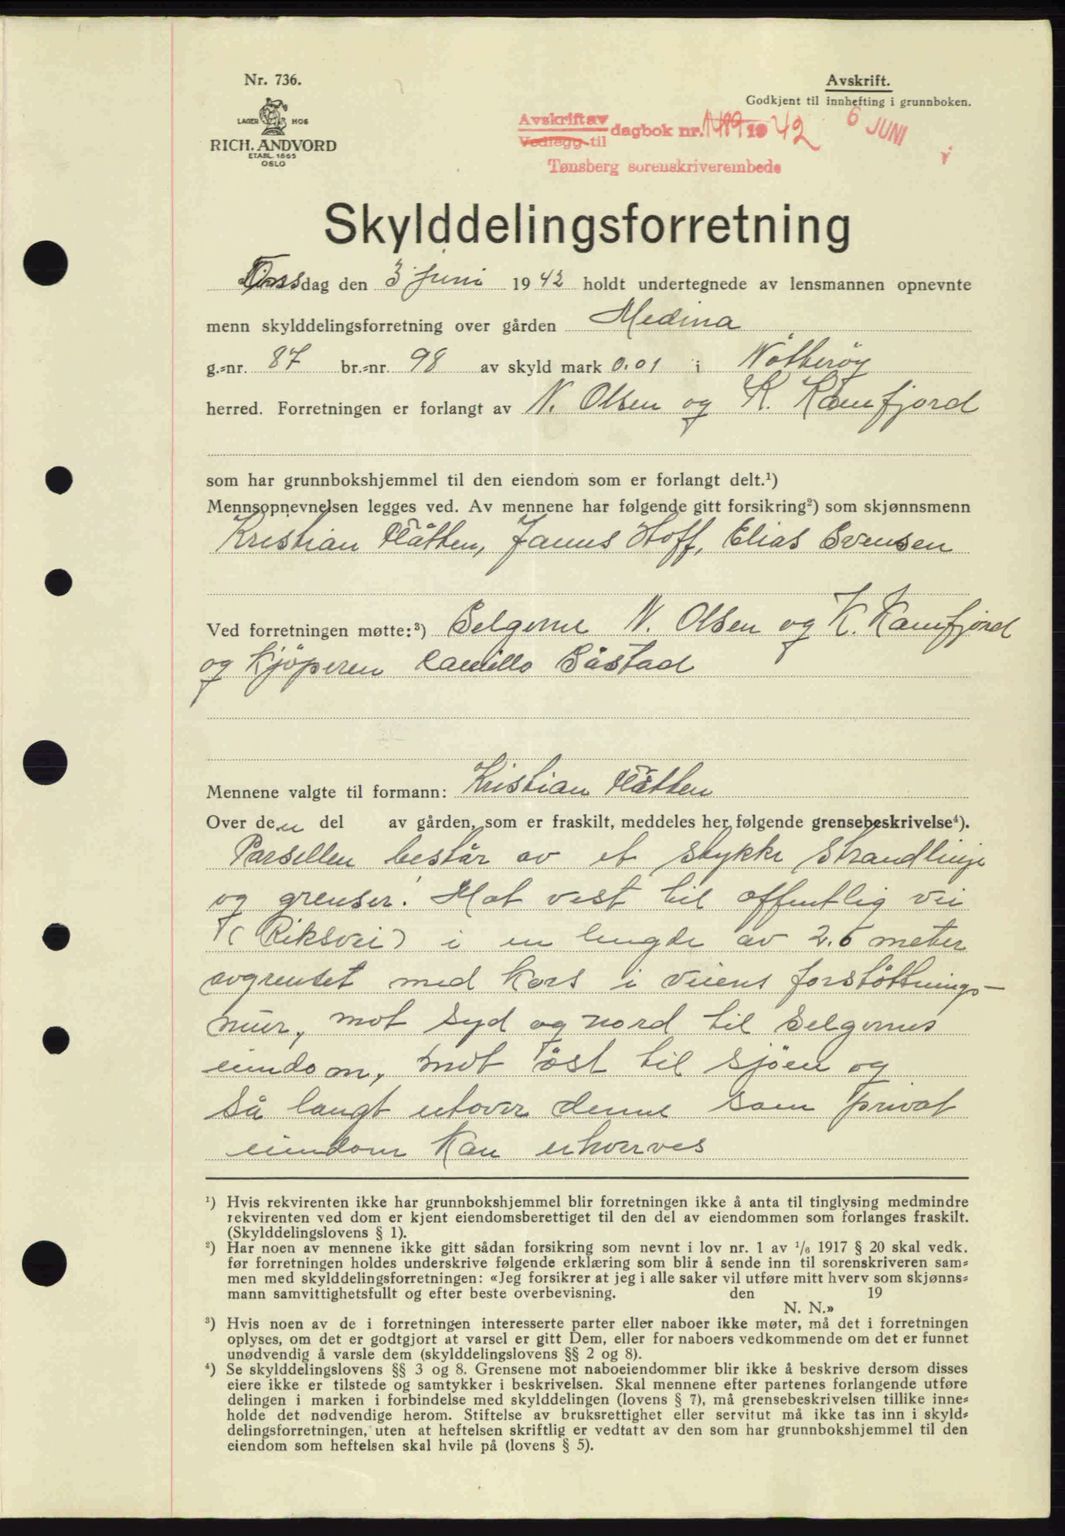 Nr. 736.
LAGER HOS
RICH. ANDVORD
ETABL. 1865
OSLO
Avskrift.
Godkjent til innhefting i grunnboken.
Avskrift av
Vedlegg til
dagbok nr. 1942
6 JUNI
Tønsberg sorenskriverembede
Skylddelingsforretning
dag den 3 juni 1942 holdt undertegnede av lensmannen opnevnte
menn skylddelingsforretning over gården Medina
g.=nr. 87 br.=nr. 98 av skyld mark 0.01 i Nøtterøy
herred. Forretningen er forlangt av N. Olsen og K. Kamfjord
som har grunnbokshjemmel til den eiendom som er forlangt delt.¹)
Mennsopnevnelsen legges ved. Av mennene har følgende gitt forsikring²) som skjønnsmenn
Kristian Flåtten, Janus Hoff, Elias Evensen
Ved forretningen møtte:³) Selgerne N. Olsen og K. Kamfjord
og kjöperen Camillo Båstad
Mennene valgte til formann: Kristian Flåtten
Over den del av gården, som er fraskilt, meddeles her følgende grensebeskrivelse⁴).
Parsellen består av et stykke strandlinje
og grenser: Mot vest til offentlig vei
(Riksvei) i en lengde av 2.6 meter
avgrenset med kors i veiens forstöttnings-
mur, mot syd og nord til selgernes
eiendom, mot öst til sjöen og
så langt utover denne som privat
eiendom kan erhverves
¹) Hvis rekvirenten ikke har grunnbokshjemmel blir forretningen ikke å anta til tinglysing medmindre
rekvirenten ved dom er kjent eiendomsberettiget til den del av eiendommen som forlanges fraskilt.
(Skylddelingslovens § 1).
²) Har noen av mennene ikke gitt sådan forsikring som nevnt i lov nr. 1 av ¹/₆ 1917 § 20 skal vedk.
før forretningen holdes underskrive følgende erklæring som blir å sende inn til sorenskriveren sam=
men med skylddelingsforretningen: «Jeg forsikrer at jeg i alle saker vil utføre mitt hverv som skjønns=
mann samvittighetsfullt og efter beste overbevisning. den 19
N. N.»
³) Hvis noen av de i forretningen interesserte parter eller naboer ikke møter, må det i forretningen
oplyses, om det er godtgjort at varsel er gitt Dem, eller for naboers vedkommende om det er funnet
unødvendig å varsle dem (skylddelingslovens §§ 2 og 8).
⁴) Se skylddelingslovens §§ 3 og 8. Grensene mot naboeiendommer blir ikke å beskrive dersom disses
eiere ikke er tilstede og samtykker i beskrivelsen. Skal mennene efter partenes forlangende utføre
delingen i marken i forbindelse med skylddelingen (lovens § 7), må grensebeskrivelsen tillike inne=
holde det nødvendige herom. Stiftelse av bruksrettighet eller servitut må ikke tas inn i skyld=
delingsforretningen, uten at heftelsen skriftlig er vedtatt av den som har grunnbokshjemmel til den
eiendom som heftelsen skal hvile på (lovens § 5).